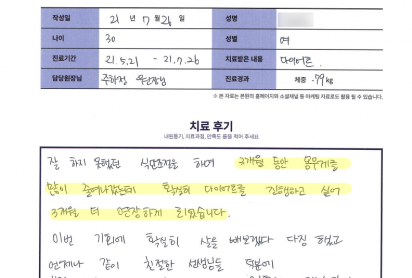 작성일 21 년 7 월 26 일 성명
나이 30 성별 여
진료기간 21. 5. 21 - 21. 7. 26 치료받은 내용 다이어트
담당원장님 원장님 진료경과 체중 -7.9kg
※ 본 자료는 본원의 홈페이지와 소셜채널 등 마케팅 자료로도 활용 될 수 있습니다.
치료 후기
내원동기, 치료과정, 만족도 등을 적어 주세요.
잘 하지 못했던 식단조절을 하며 3개월 동안 몸무게를
많이 줄여나갔는데 확실히 다이어트를 진행하고 싶어
3개월 더 연장하게 되었습니다.
이번 기회에 확실히 살을 빼보겠다 다짐 했고
언제나 같이 친절한 선생님들 덕분에